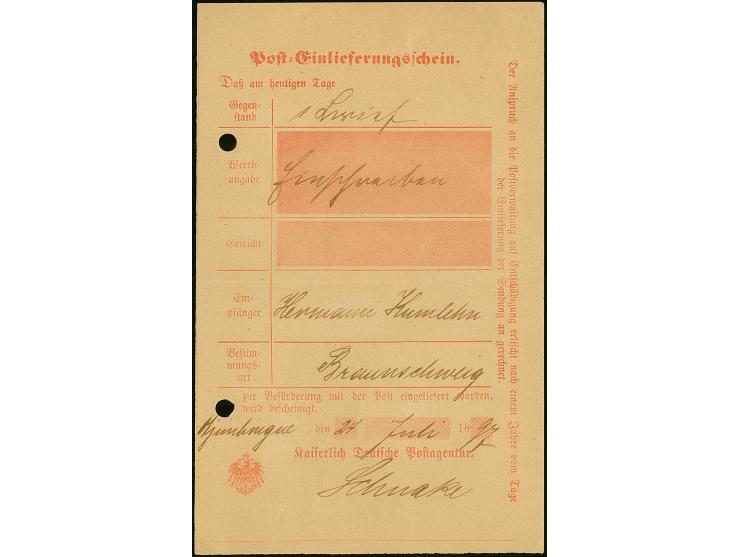 Post-Einlieferungsschein.
Daß am heutigen Tage
Gegen-
stand
1 Brief
Werth-
angabe
Einschreiben
Gewicht
Em-
pfänger
Hermann Kumlehn
Bestim-
mungs-
ort
Braunschweig
zur Beförderung mit der Post eingeliefert worden,
wird bescheinigt.
, den 24 Juli 1897
Kaiserlich Deutsche Postagentur.
Schnake
Der Anspruch an die Postverwaltung auf Entschädigung erlischt nach einem Jahre vom Tage
der Einlieferung der Sendung an gerechnet.